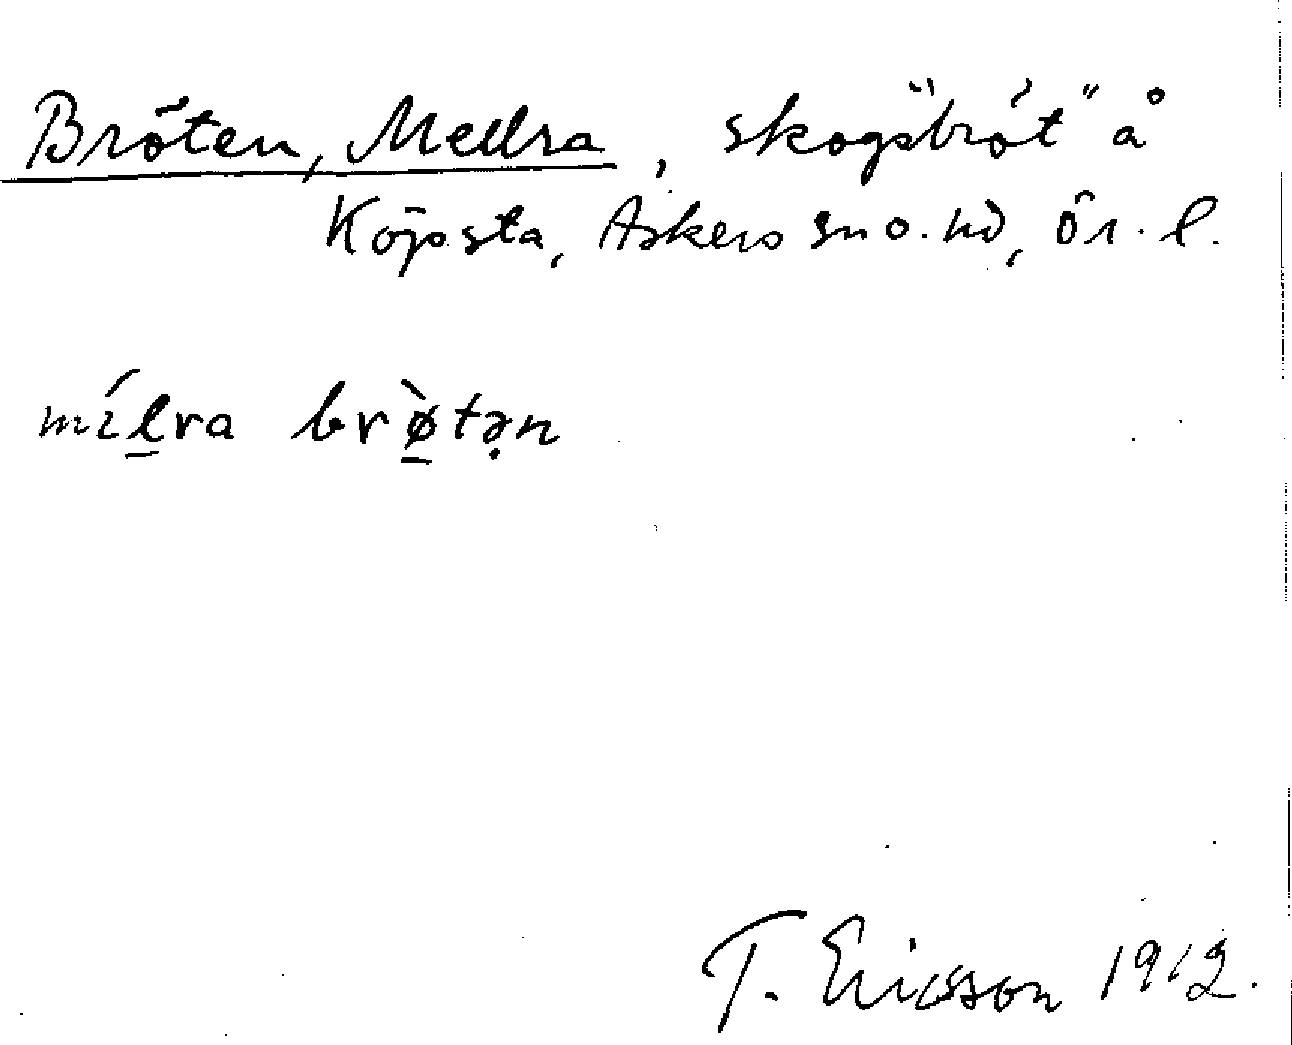 Bröten, Medra, skogs"bröt" å
Köpsta, Askers sn o. hd, Ör. l.
mílra brø̀tən
T. Ericsson 1912.